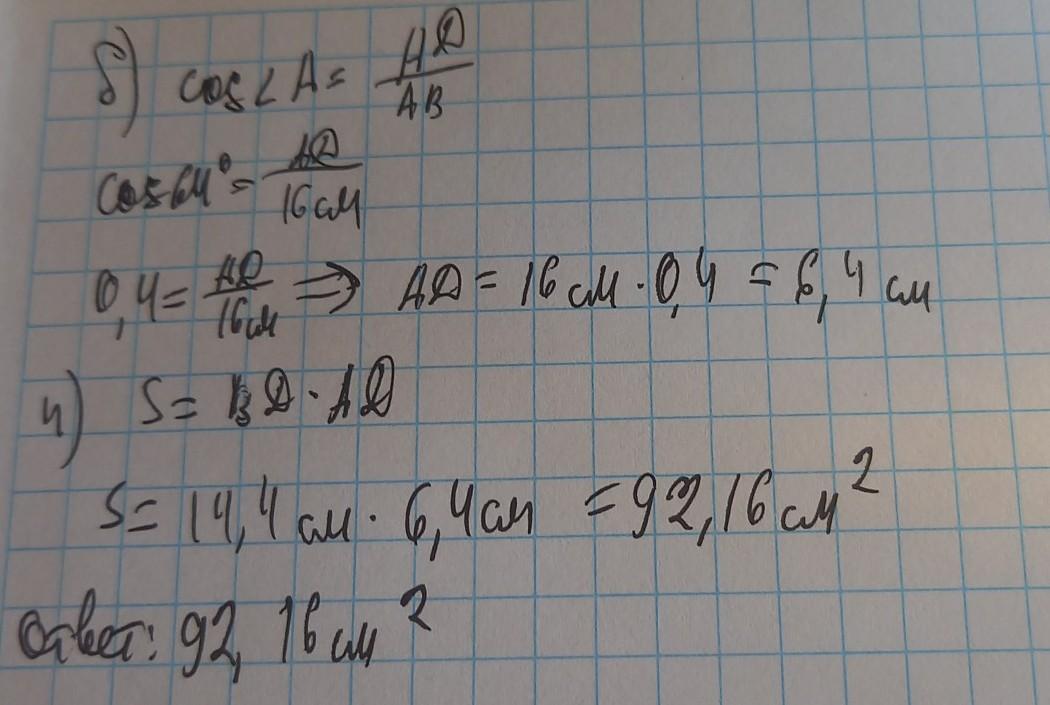 б) cos∠A = АД/АВ
cos64° = АД/16см
0,4 = АД/16см ⇒ АД = 16см · 0,4 = 6,4 см
4) S = ВД · АД
S = 14,4 см · 6,4см = 92,16 см²
Ответ: 92,16 см²